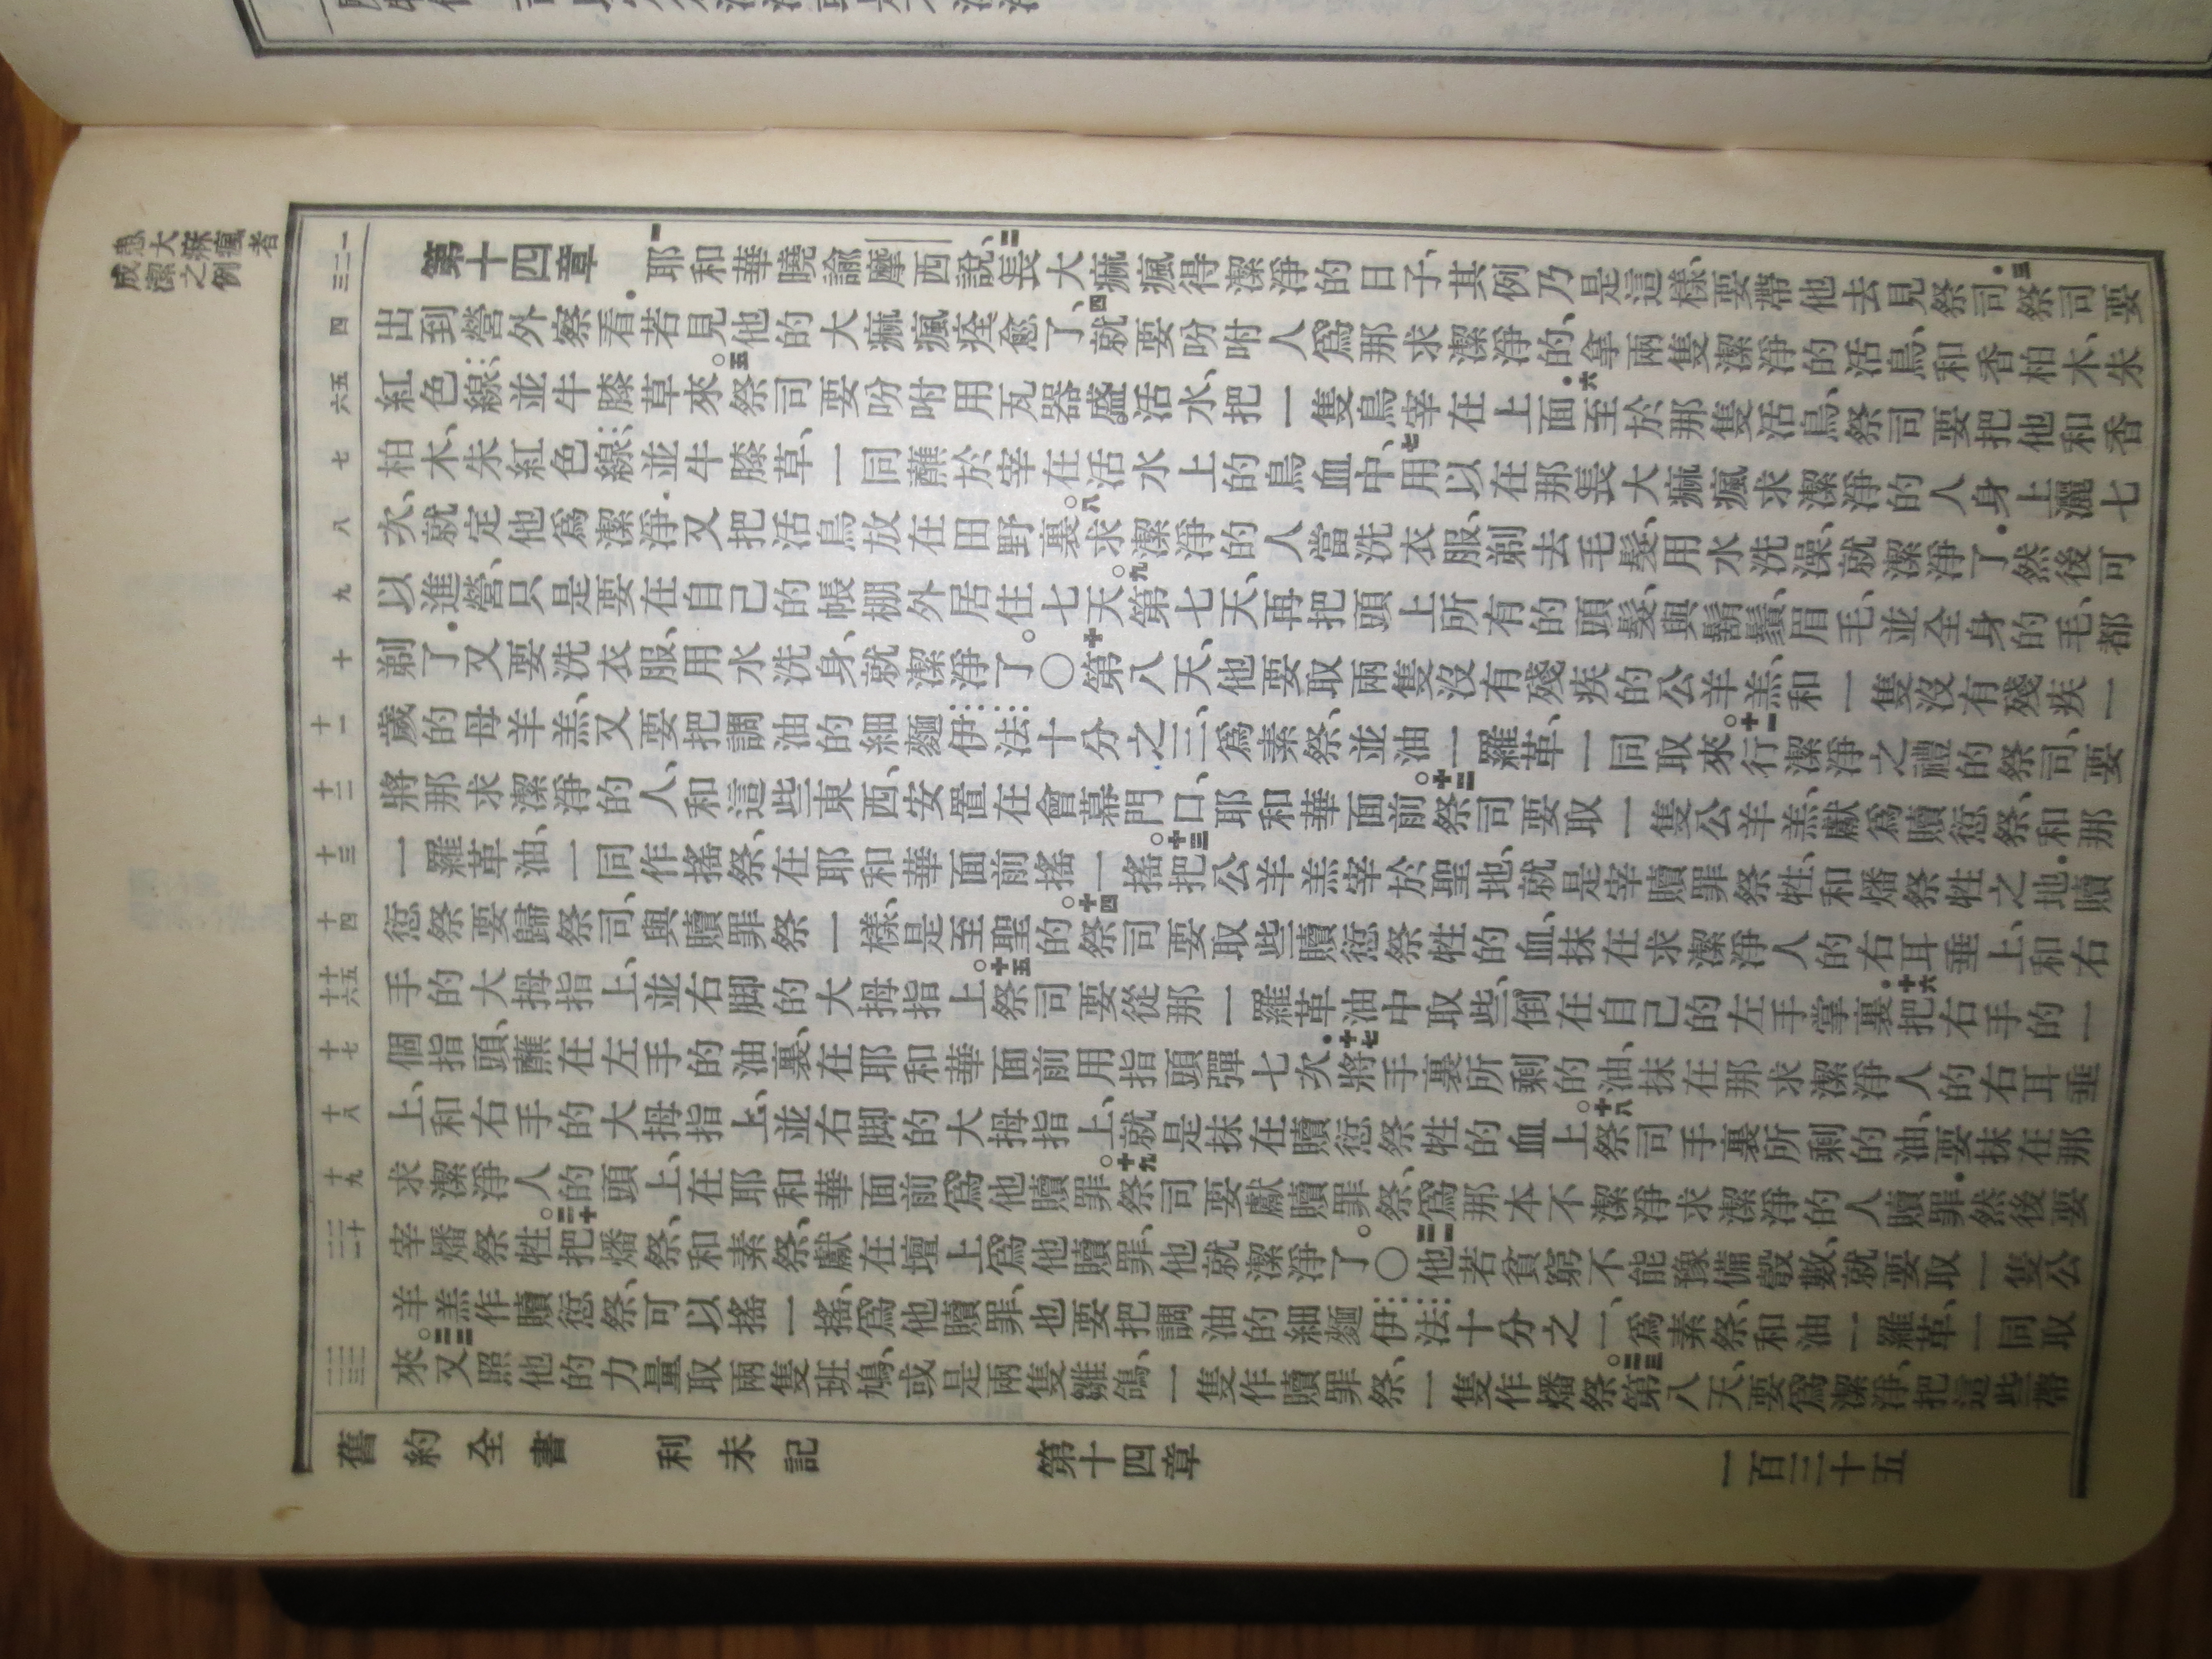 患大痲瘋者
成潔之例
第十四章 一耶和華曉諭摩西說、二長大痲瘋得潔淨的日子、其例乃是這樣、要帶他去見祭司．三祭司要
出到營外察看．若見他的大痲瘋痊愈了、四就要吩咐人爲那求潔淨的、拿兩隻潔淨的活鳥、和香柏木、朱
紅色線、並牛膝草來。五祭司要吩咐用瓦器盛活水、把一隻鳥宰在上面．六至於那隻活鳥、祭司要把他和香
柏木、朱紅色線、並牛膝草、一同蘸於宰在活水上的鳥血中、七用以在那長大痲瘋求潔淨的人身上灑七
次、就定他爲潔淨．又把活鳥放在田野裏。八求潔淨的人當洗衣服、剃去毛髮、用水洗澡、就潔淨了．然後可
以進營、只是要在自己的帳棚外居住七天。九第七天、再把頭上所有的頭髮、與鬍鬚、眉毛、並全身的毛、都
剃了．又要洗衣服、用水洗身、就潔淨了。〇十第八天、他要取兩隻沒有殘疾的公羊羔、和一隻沒有殘疾一
歲的母羊羔、又要把調油的細麵伊法十分之三、爲素祭、並油一羅革、一同取來。十一行潔淨之禮的祭司、要
將那求潔淨的人、和這些東西、安置在會幕門口、耶和華面前。十二祭司要取一隻公羊羔、獻爲贖愆祭、和那
一羅革油、一同作搖祭、在耶和華面前搖一搖。十三把公羊羔宰於聖地、就是宰贖罪祭牲、和燔祭牲之地．贖
愆祭要歸祭司、與贖罪祭一樣、是至聖的。十四祭司要取些贖愆祭牲的血、抹在求潔淨人的右耳垂上、和右
手的大拇指上、並右脚的大拇指上。十五祭司要從那一羅革油中取些、倒在自己的左手掌裏．十六把右手的一
個指頭、蘸在左手的油裏、在耶和華面前用指頭彈七次．十七將手裏所剩的油、抹在那求潔淨人的右耳垂
上、和右手的大拇指上、並右脚的大拇指上、就是抹在贖愆祭牲的血上。十八祭司手裏所剩的油、要抹在那
求潔淨人的頭上、在耶和華面前爲他贖罪。十九祭司要獻贖罪祭、爲那本不潔淨求潔淨的人贖罪．然後要
宰燔祭牲。二十把燔祭、和素祭、獻在壇上、爲他贖罪、他就潔淨了。〇二一他若貧窮不能豫備彀數、就要取一隻公
羊羔作贖愆祭、可以搖一搖、爲他贖罪、也要把調油的細麵伊法十分之一、爲素祭、和油一羅革、一同取
來。二二又照他的力量取兩隻班鳩、或是兩隻雛鴿、一隻作贖罪祭、一隻作燔祭。二三第八天、要爲潔淨、把這些帶
舊約全書 利未記 第十四章 一百三十五